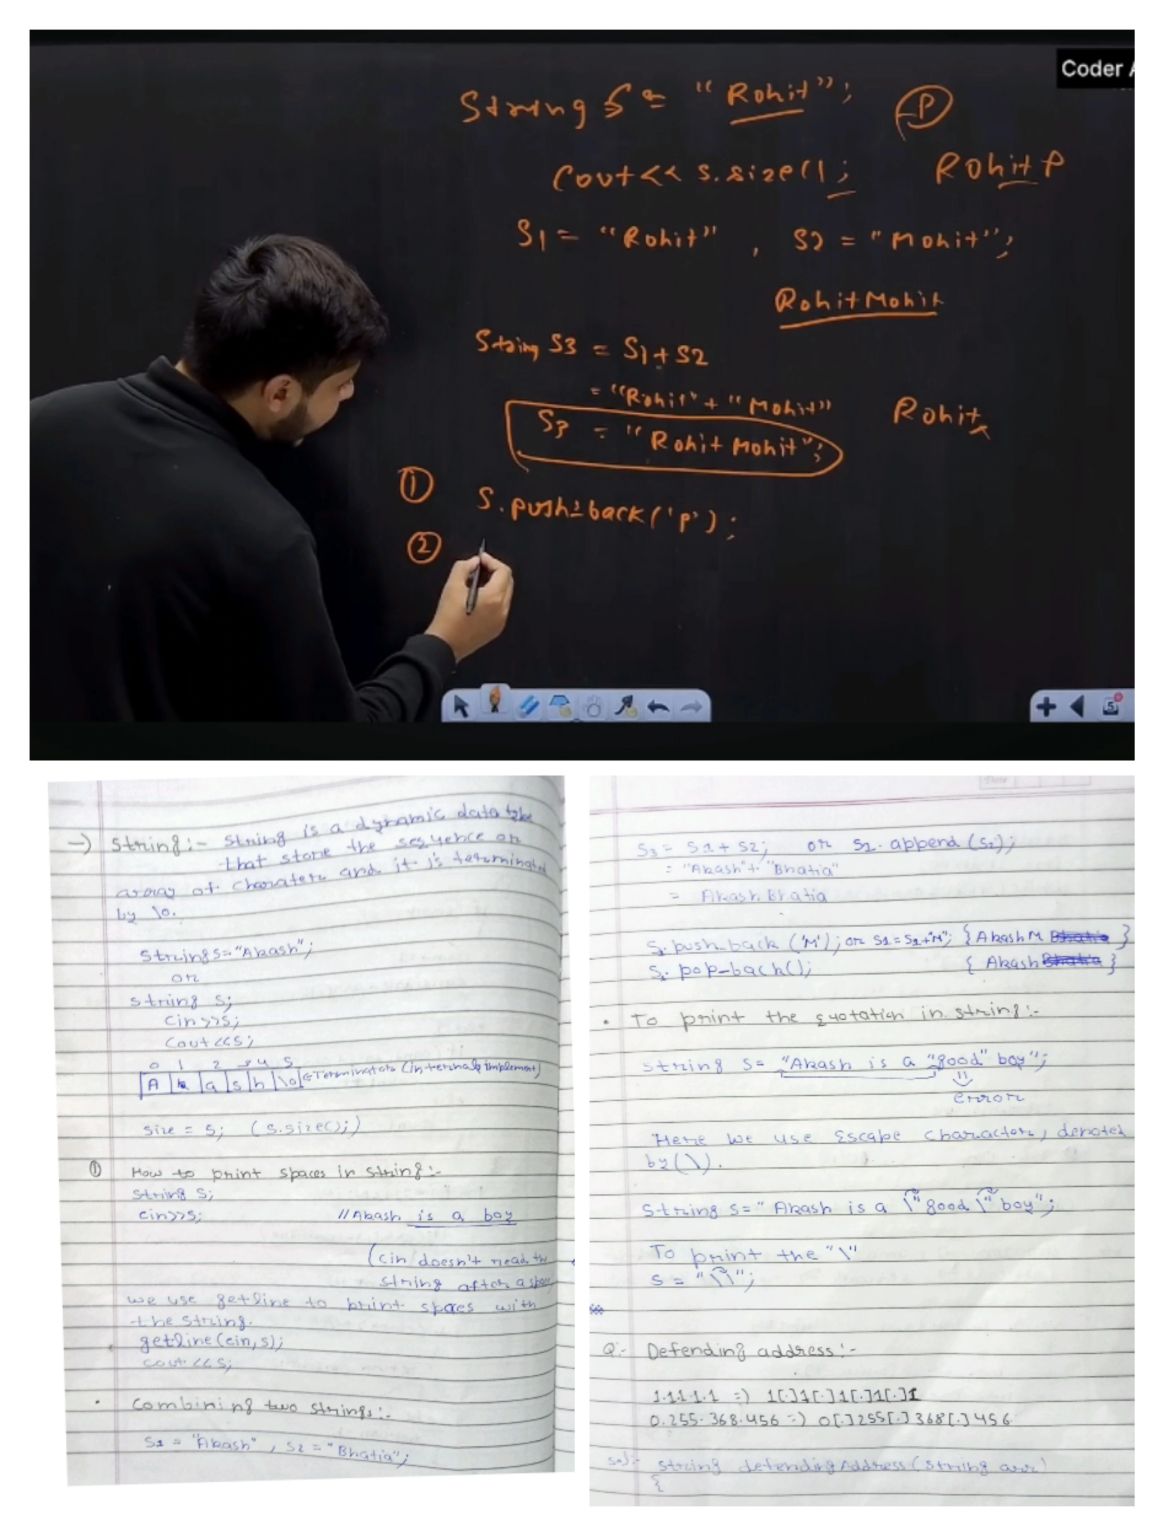 Coder A
String S = "Rohit"; P
Cout<< s.size(); RohitP
S1 = "Rohit" , S2 = "Mohit";
RohitMohit
String S3 = S1 + S2
= "Rohit" + "Mohit" Rohit
S3 = "Rohit Mohit";
① S.push_back('p');
②
5
→) String:- String is a dynamic data type
that store the sequence or
array of charaters and it is terminated
by \0.
String s="Akash";
or
string s;
cin>>s;
cout<<s;
0 1 2 3 4 5
A k a s h \0 ←Terminator (internally implement)
size = 5; (s.size();)
① How to print spaces in string:-
string s;
cin>>s; //Akash is a boy
(cin doesn't read the
string after a space
we use getline to print spaces with
the string.
getline(cin,s);
cout<<s;
• Combining two strings:-
S1 = "Akash" , S2 = "Bhatia";
Date
S3 = S1 + S2; or S1.append(S2);
= "Akash" + "Bhatia"
= Akash Bhatia
S1.push_back('M'); or S1=S1+"M"; {AkashM Bhatia}
S1.pop-back(); {Akash Bhatia}
• To print the quotation in string:-
string s= "Akash is a "good" boy";
error
Here we use Escape charactors, denoted
by(\).
String s=" Akash is a \"good\" boy";
To print the "\"
s = "\\";
Q:- Defending address:-
1.1.1.1.1 => 1[.]1[.]1[.]1[.]1
0.255.368.456 => 0[.]255[.]368[.]456
sol:- string defendingAddress(string arr)
{